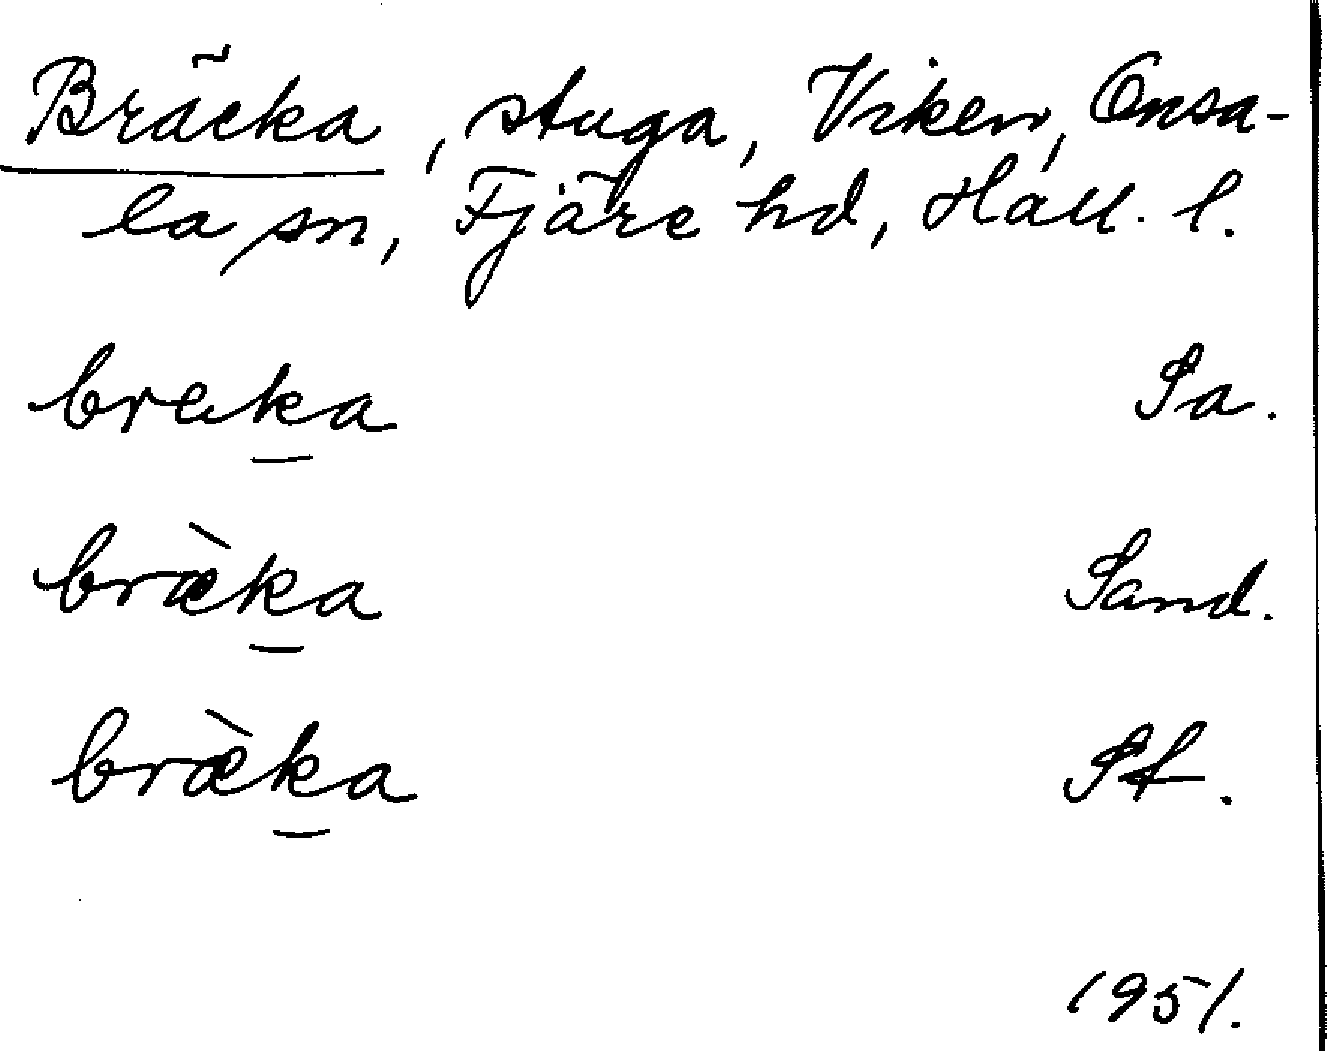 Bräcka, stuga, Viken, Onsa-
la sn, Fjäre hd, Hall. l.
breka Sa.
bræ̀ka Sand.
bræ̀ka St.
1951.